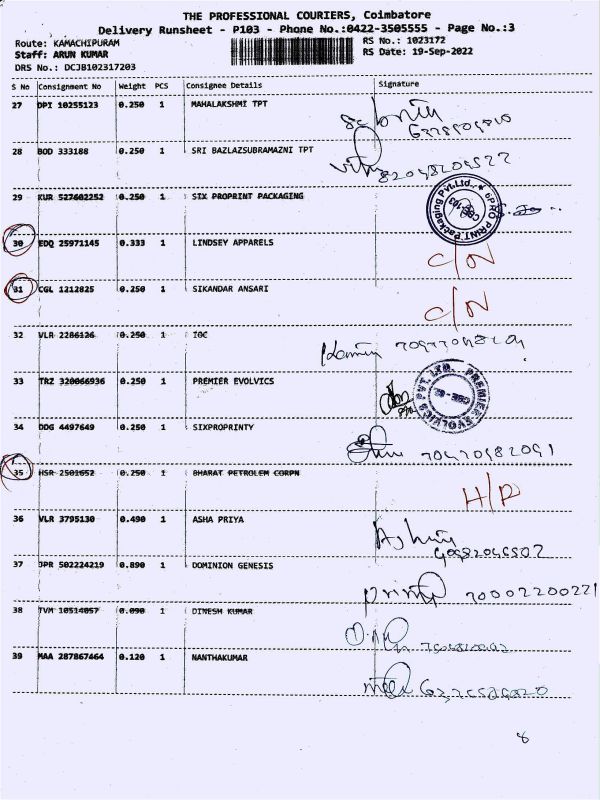 THE PROFESSIONAL COURIERS, Coimbatore
Delivery Runsheet - P103 - Phone No.:0422-3505555 - Page No.:3
Route: KAMACHIPURAM RS No.: 1023172
Staff: ARUN KUMAR RS Date: 19-Sep-2022
DRS No.: DCJB102317203
S No Consignment No Weight PCS Consignee Details Signature
27 DPI 10255123 0.250 1 MAHALAKSHMI TPT
28 BOD 333188 0.250 1 SRI BAZLAZSUBRAMAZNI TPT
29 KUR 527602252 0.250 1 SIX PROPRINT PACKAGING
30 EDQ 25971145 0.333 1 LINDSEY APPARELS C/N
31 CGL 1212825 0.250 1 SIKANDAR ANSARI C/N
32 VLR 2286126 0.250 1 IOC
33 TRZ 320066936 0.250 1 PREMIER EVOLVICS
PREMIER EVOLVICS PVT. LTD.
34 DDG 4497649 0.250 1 SIXPROPRINTY
35 HSR 2501652 0.250 1 BHARAT PETROLEM CORPN
36 VLR 3795130 0.490 1 ASHA PRIYA
37 JPR 502224219 0.890 1 DOMINION GENESIS
38 TVM 10514057 0.090 1 DINESH KUMAR
39 MAA 287867464 0.120 1 NANTHAKUMAR
8